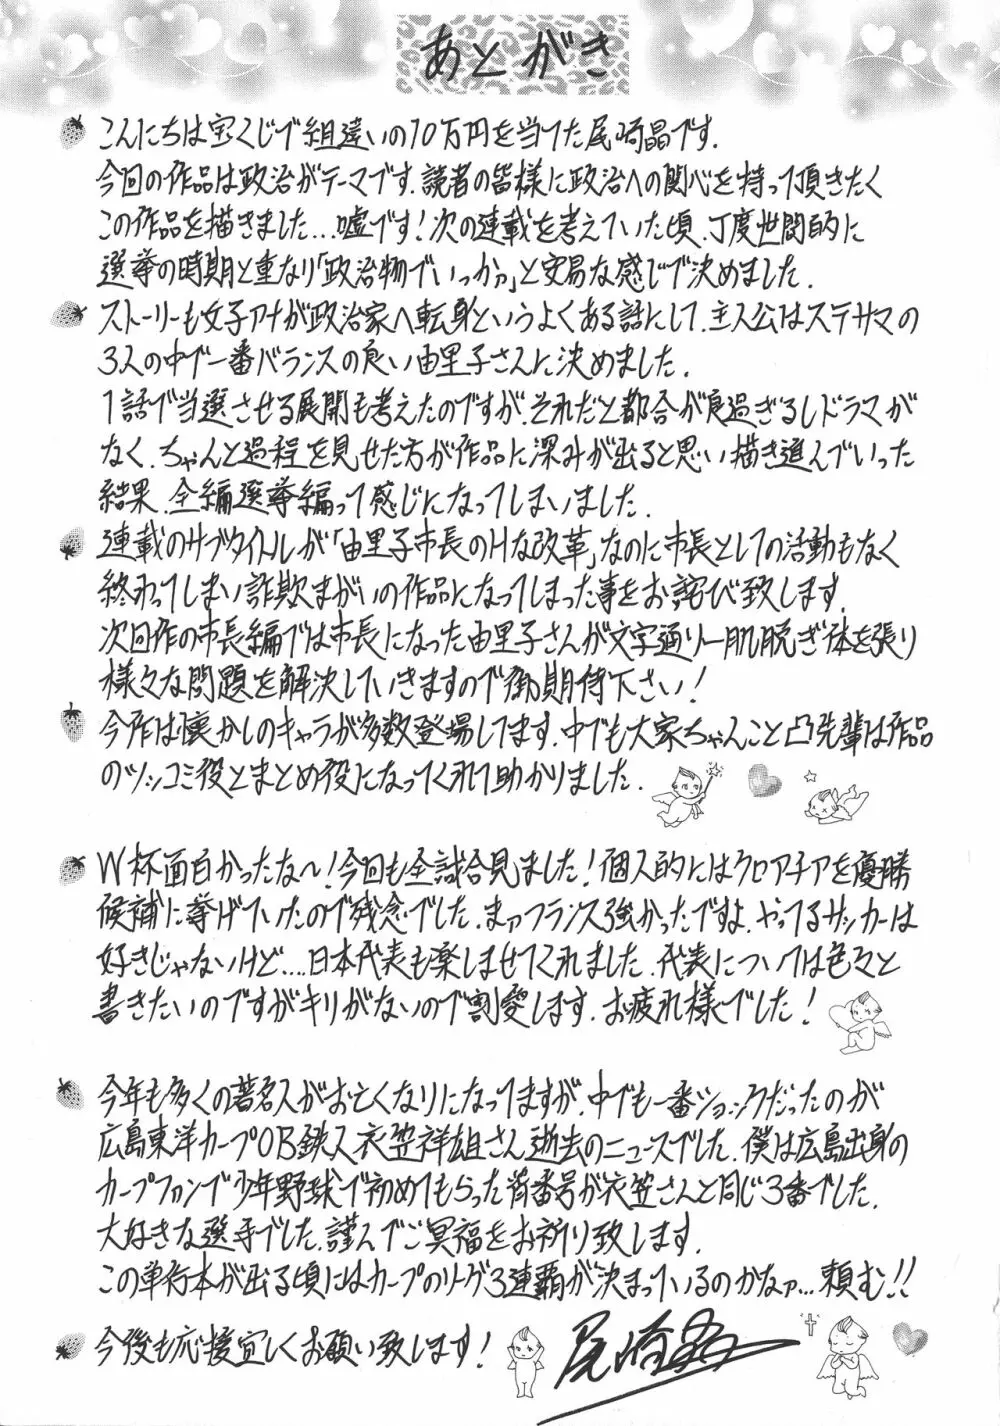 あとがき
こんにちは宝くじで組違いの10万円を当てた尾崎晶です.
今回の作品は政治がテーマです.読者の皆様に政治への関心を持って頂きたく
この作品を描きました...嘘です!次の連載を考えていた頃.丁度世間的に
選挙の時期と重なり「政治物でいっかァ」と安易な感じで決めました.
ストーリーも女子アナが政治家へ転身というよくある話にして.主人公はステサマの
3人の中で一番バランスの良い由里子さんに決めました.
1話で当選させる展開も考えたのですが.それだと都合が良過ぎるしドラマが
なく.ちゃんと過程を見せた方が作品に深みが出ると思い描き進んでいった
結果.全編選挙編って感じになってしまいました.
連載のサブタイトルが「由里子市長のHな改革」なのに市長としての活動もなく
終わってしまい詐欺まがいの作品になってしまった事をお詫び致します.
次回作の市長編では市長になった由里子さんが文字通り一肌脱ぎ体を張り
様々な問題を解決していきますので御期待下さい!
今作は懐かしのキャラが多数登場してます.中でも大家ちゃんこと凸先輩は作品
のツッコミ役とまとめ役になってくれて助かりました.
W杯面白かったな〜!今回も全試合見ました!個人的にはクロアチアを優勝
候補に挙げていたので残念でした.まァフランス強かったですよ.やってるサッカーは
好きじゃないけど....日本代表も楽しませてくれました.代表については色々と
書きたいのですがキリがないので割愛します.お疲れ様でした!
今年も多くの著名人がお亡くなりになってますが.中でも一番ショックだったのが
広島東洋カープOB鉄人衣笠祥雄さん逝去のニュースでした.僕は広島出身の
カープファンで少年野球で初めてもらった背番号が衣笠さんと同じ3番でした.
大好きな選手でした.謹んでご冥福をお祈り致します.
この単行本が出る頃にはカープのリーグ3連覇が決まっているのかなァ...頼む!!
今後も応援宜しくお願い致します!
尾崎晶